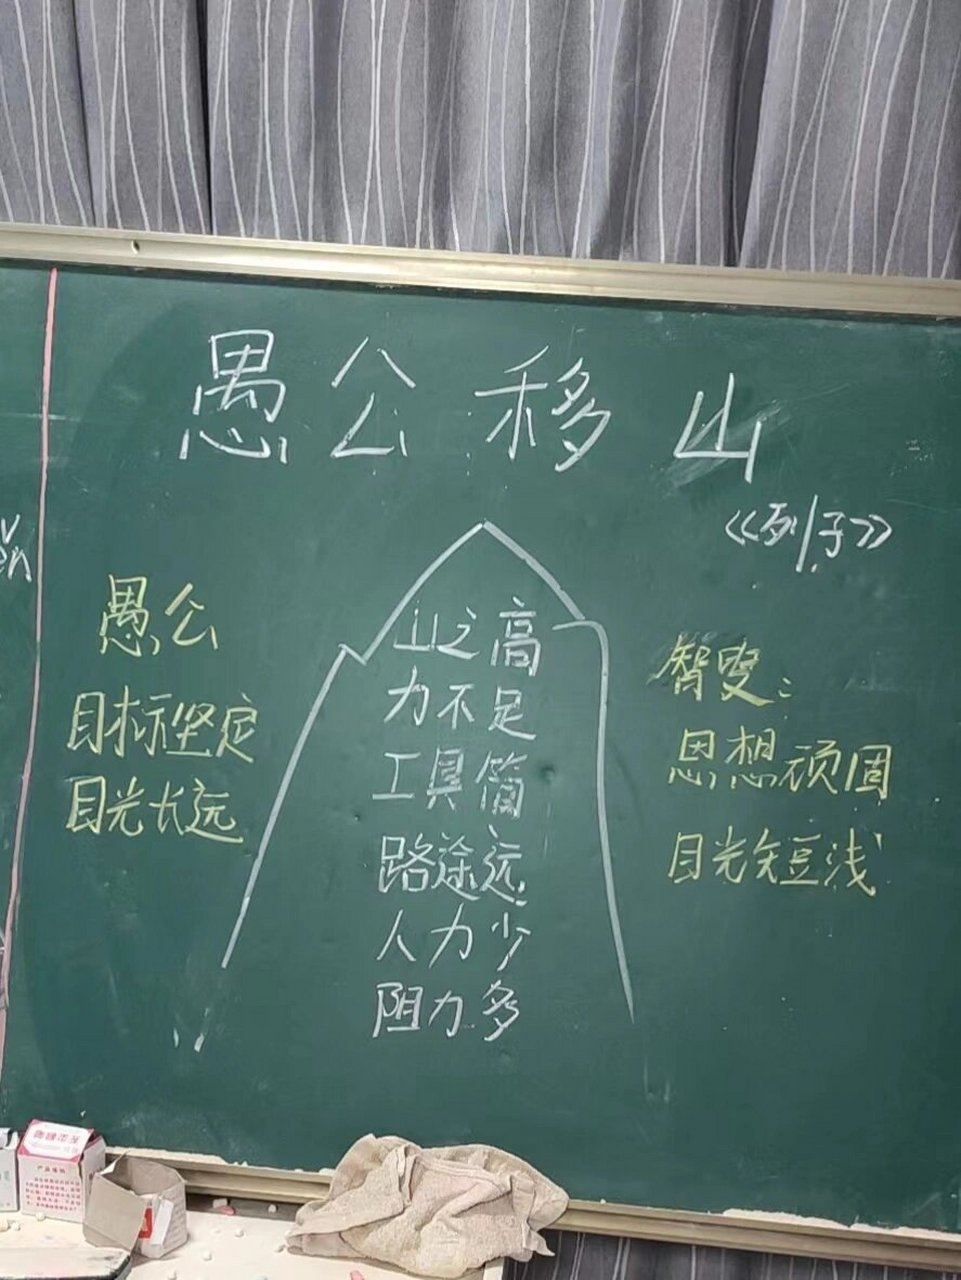 愚公移山
《列子》
愚公
目标坚定
目光长远
山之高
力不足
工具简
路途远
人力少
阻力多
智叟:
思想顽固
目光短浅